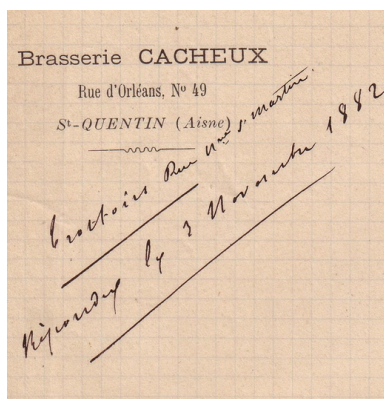 Brasserie CACHEUX
Rue d'Orléans, Nº 49
St-QUENTIN (Aisne)
Trottoirs Rue St Martin
Répondu le 3 Novembre 1882